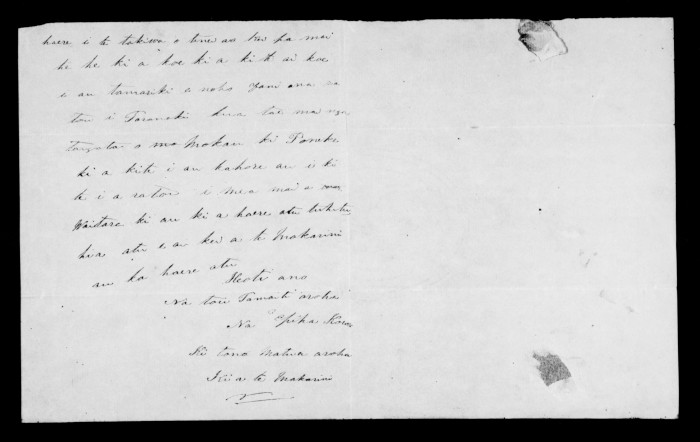 haere i te takiwa o tenei ao kei pa mai
he he ki a koe ki a kite ai koe
e au tamariki e noho Pani ana ra
tou i Taranaki kua tae mai nga
tangata o mo Mokau ki Poneke
ki a kite i au kahore au i ki
te i a ratou i mea mai a
Waitara ki au ki a haere atu tuhituhi
hia atu e au kei a te Makarini
au ka haere atu
Heoti ano
Na tou Tamaiti aroha
Na Epiha
Ki tona Matua aroha
Ki a te Makarini